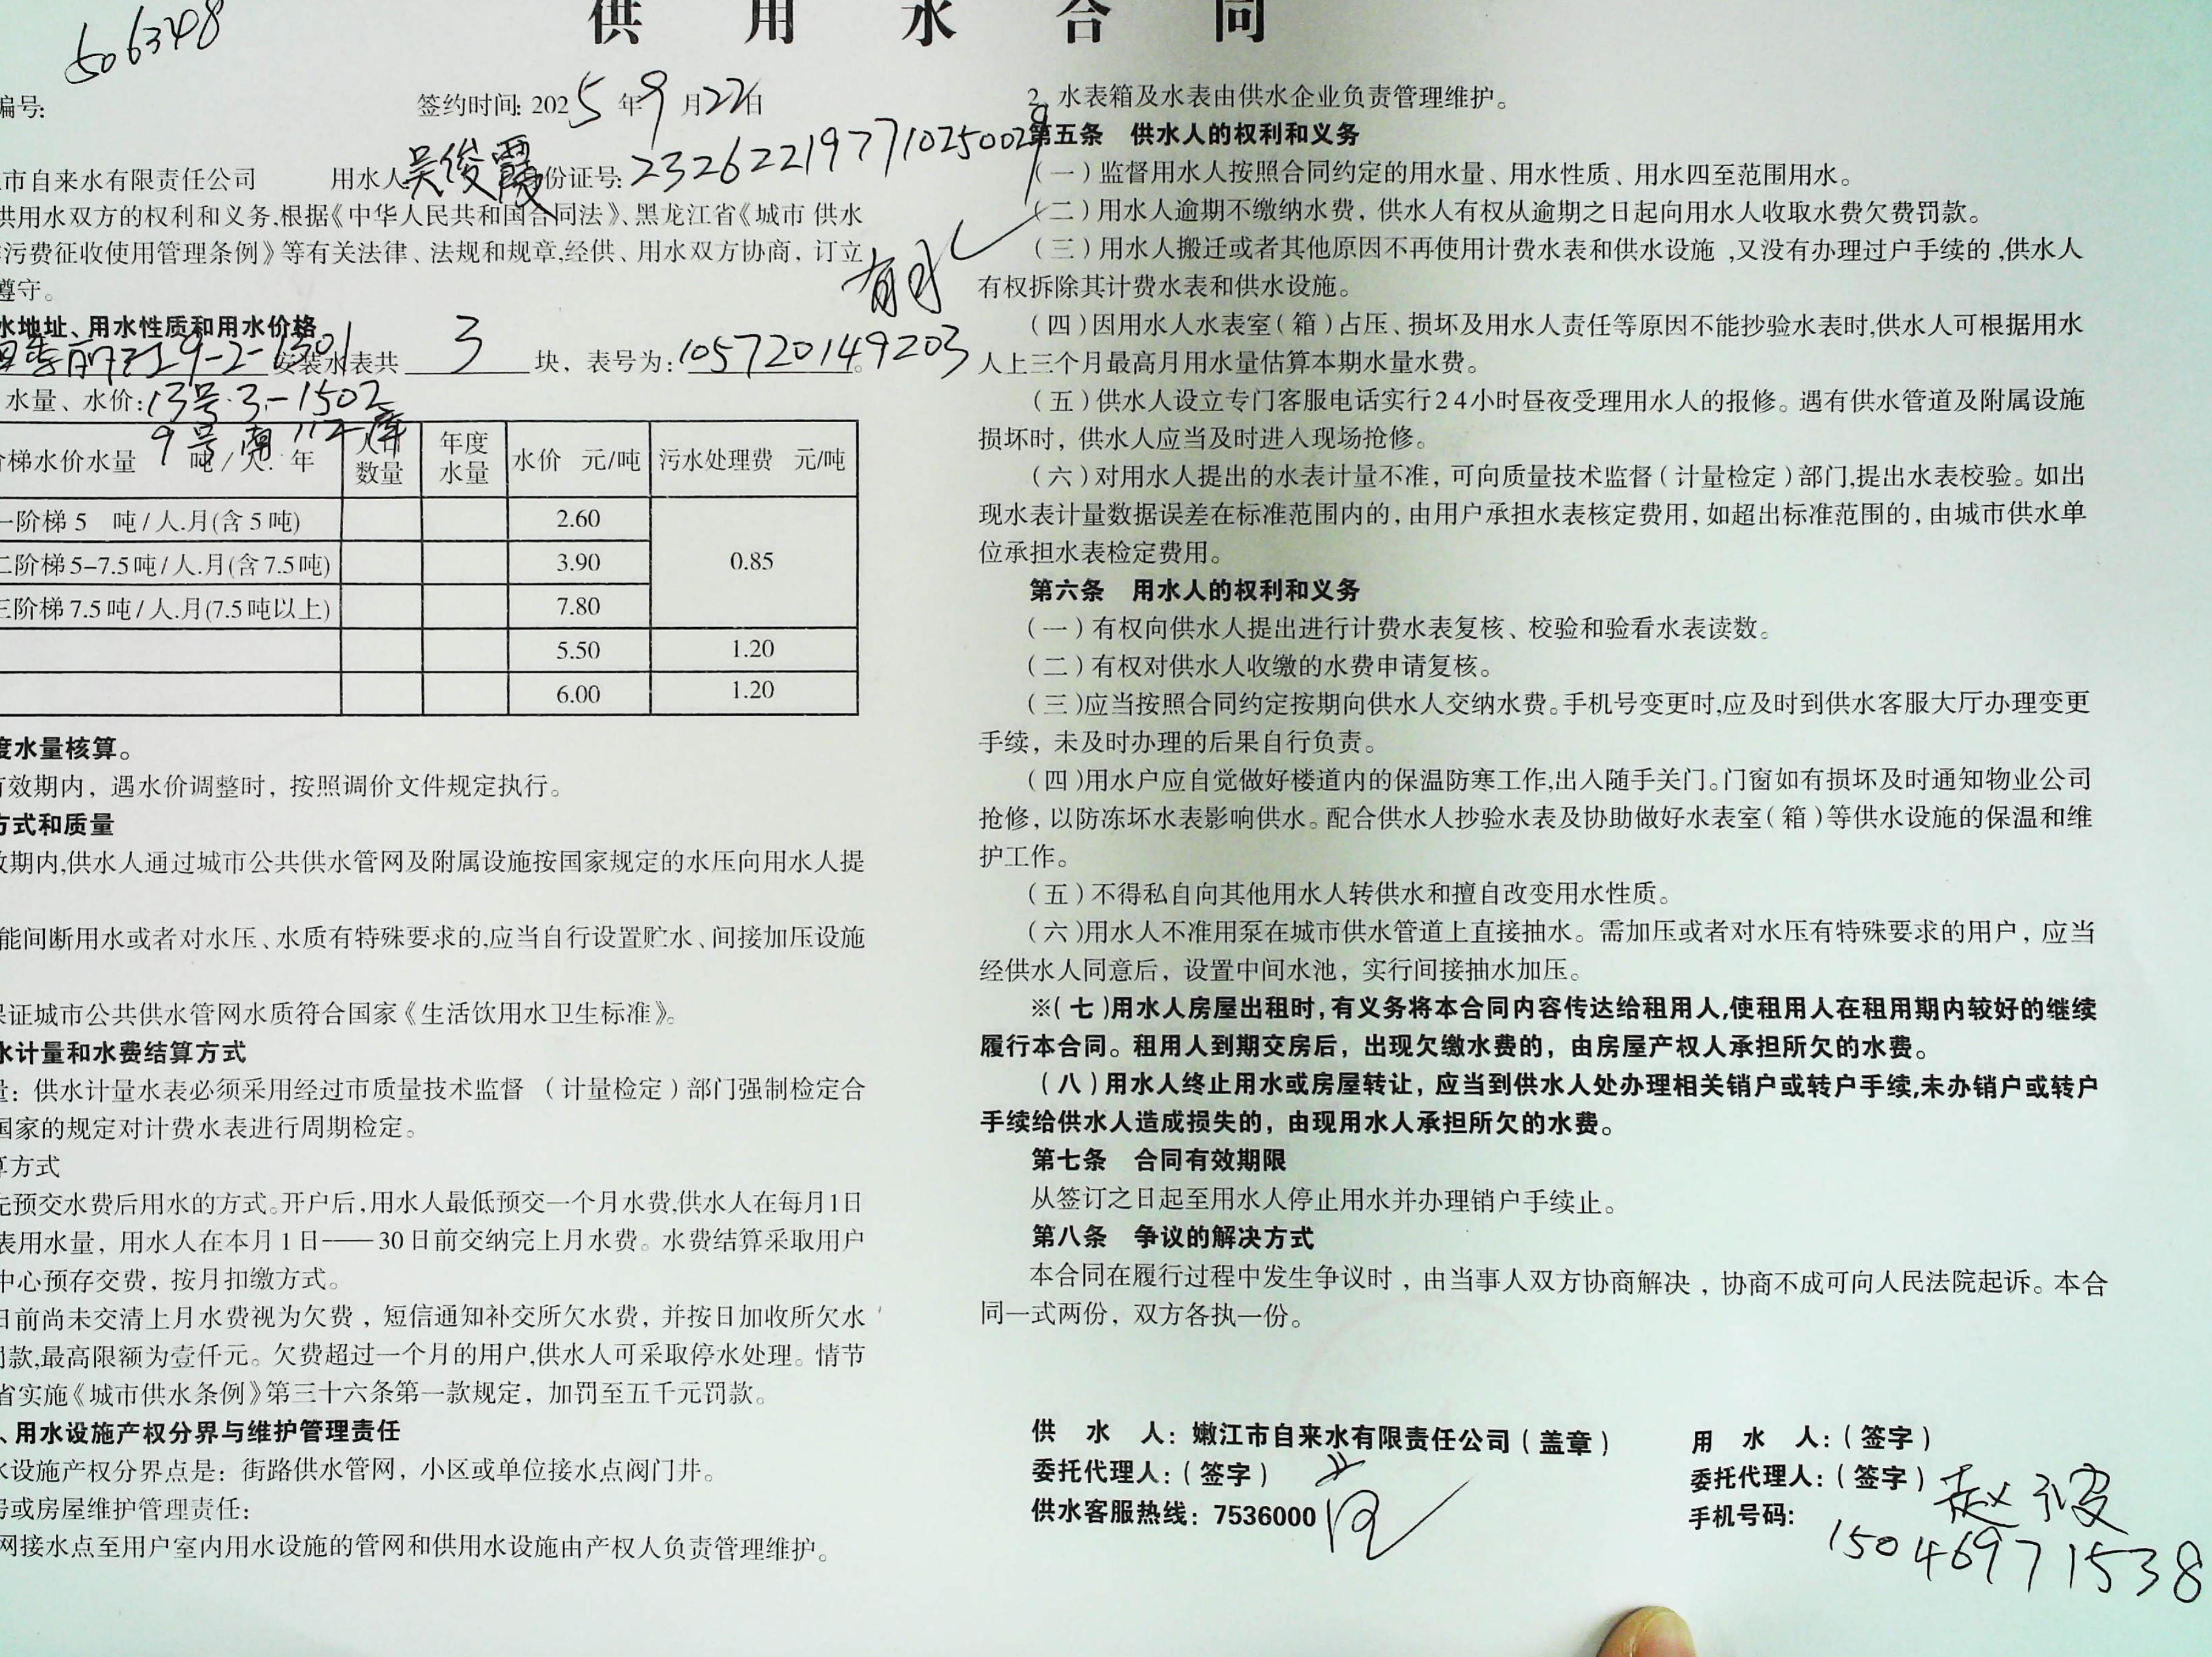 供用水合同
506348
编号:
签约时间: 2025年9月22日
市自来水有限责任公司 用水人吴俊霞 份证号: 232622197710250029
共用水双方的权利和义务,根据《中华人民共和国合同法》、黑龙江省《城市供水
污费征收使用管理条例》等有关法律、法规和规章,经供、用水双方协商，订立
遵守。
有水
水地址、用水性质和用水价格
9-2-1301 安装水表共 3 块，表号为: 105720149203。
水量、水价: 13号.3-1502
9号南112库
阶梯水价水量 吨/人.年 人口数量 年度水量 水价 元/吨 污水处理费 元/吨
一阶梯 5 吨/人.月(含5吨) 2.60 0.85
二阶梯 5-7.5吨/人.月(含7.5吨) 3.90
三阶梯 7.5吨/人.月(7.5吨以上) 7.80
5.50 1.20
6.00 1.20
度水量核算。
有效期内，遇水价调整时，按照调价文件规定执行。
方式和质量
效期内,供水人通过城市公共供水管网及附属设施按国家规定的水压向用水人提
能间断用水或者对水压、水质有特殊要求的,应当自行设置贮水、间接加压设施
保证城市公共供水管网水质符合国家《生活饮用水卫生标准》。
水计量和水费结算方式
量：供水计量水表必须采用经过市质量技术监督（计量检定）部门强制检定合
国家的规定对计费水表进行周期检定。
算方式
先预交水费后用水的方式。开户后,用水人最低预交一个月水费,供水人在每月1日
表用水量，用水人在本月1日——30日前交纳完上月水费。水费结算采取用户
中心预存交费，按月扣缴方式。
日前尚未交清上月水费视为欠费，短信通知补交所欠水费，并按日加收所欠水
罚款,最高限额为壹仟元。欠费超过一个月的用户,供水人可采取停水处理。情节
省实施《城市供水条例》第三十六条第一款规定，加罚至五千元罚款。
、用水设施产权分界与维护管理责任
水设施产权分界点是：街路供水管网，小区或单位接水点阀门井。
房或房屋维护管理责任：
网接水点至用户室内用水设施的管网和供用水设施由产权人负责管理维护。
2、水表箱及水表由供水企业负责管理维护。
第五条 供水人的权利和义务
（一）监督用水人按照合同约定的用水量、用水性质、用水四至范围用水。
（二）用水人逾期不缴纳水费，供水人有权从逾期之日起向用水人收取水费欠费罚款。
（三）用水人搬迁或者其他原因不再使用计费水表和供水设施,又没有办理过户手续的,供水人
有权拆除其计费水表和供水设施。
（四）因用水人水表室（箱）占压、损坏及用水人责任等原因不能抄验水表时,供水人可根据用水
人上三个月最高月用水量估算本期水量水费。
（五）供水人设立专门客服电话实行24小时昼夜受理用水人的报修。遇有供水管道及附属设施
损坏时，供水人应当及时进入现场抢修。
（六）对用水人提出的水表计量不准，可向质量技术监督（计量检定）部门,提出水表校验。如出
现水表计量数据误差在标准范围内的，由用户承担水表核定费用，如超出标准范围的，由城市供水单
位承担水表检定费用。
第六条 用水人的权利和义务
（一）有权向供水人提出进行计费水表复核、校验和验看水表读数。
（二）有权对供水人收缴的水费申请复核。
（三）应当按照合同约定按期向供水人交纳水费。手机号变更时,应及时到供水客服大厅办理变更
手续，未及时办理的后果自行负责。
（四）用水户应自觉做好楼道内的保温防寒工作,出入随手关门。门窗如有损坏及时通知物业公司
抢修，以防冻坏水表影响供水。配合供水人抄验水表及协助做好水表室（箱）等供水设施的保温和维
护工作。
（五）不得私自向其他用水人转供水和擅自改变用水性质。
（六）用水人不准用泵在城市供水管道上直接抽水。需加压或者对水压有特殊要求的用户，应当
经供水人同意后，设置中间水池，实行间接抽水加压。
※（七）用水人房屋出租时，有义务将本合同内容传达给租用人,使租用人在租用期内较好的继续
履行本合同。租用人到期交房后，出现欠缴水费的，由房屋产权人承担所欠的水费。
（八）用水人终止用水或房屋转让，应当到供水人处办理相关销户或转户手续,未办销户或转户
手续给供水人造成损失的，由现用水人承担所欠的水费。
第七条 合同有效期限
从签订之日起至用水人停止用水并办理销户手续止。
第八条 争议的解决方式
本合同在履行过程中发生争议时，由当事人双方协商解决，协商不成可向人民法院起诉。本合
同一式两份，双方各执一份。
供水人：嫩江市自来水有限责任公司（盖章）
委托代理人：（签字）
供水客服热线：7536000
用水人：（签字）
委托代理人：（签字）
手机号码： 15046971538